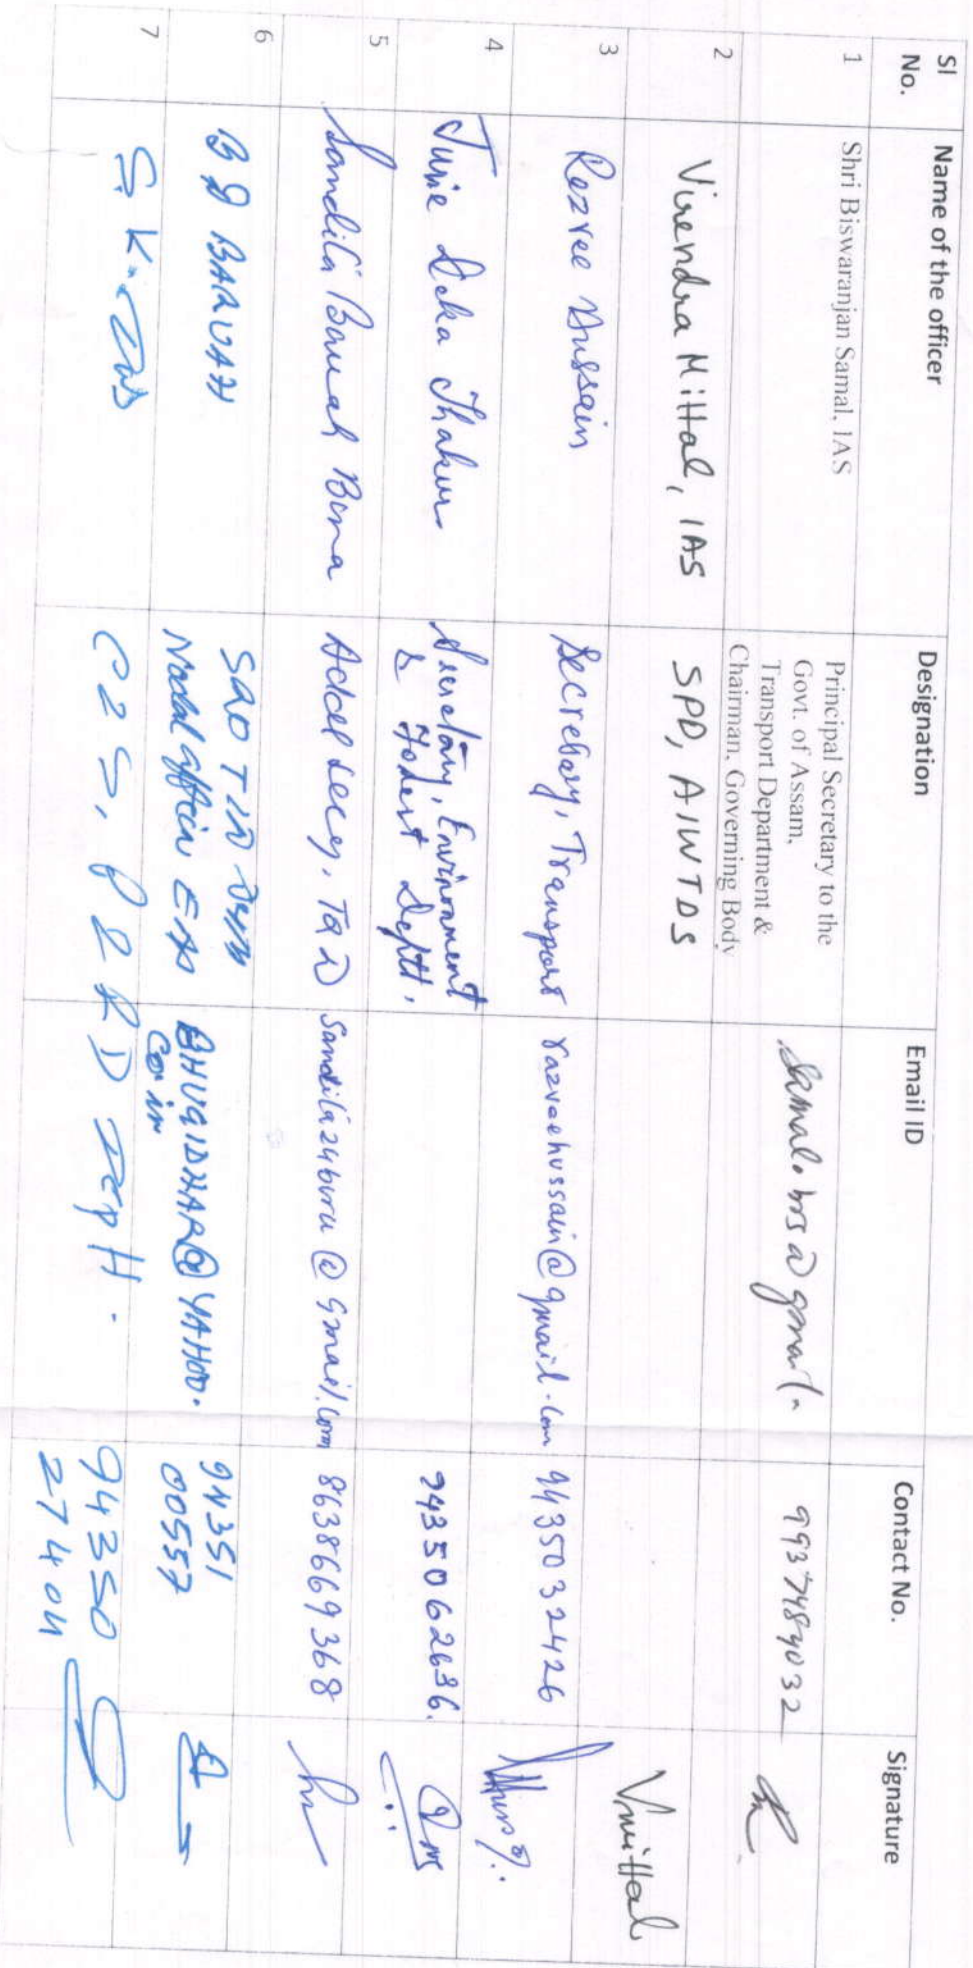 Sl No. Name of the officer Designation Email ID Contact No. Signature
1 Shri Biswaranjan Samal, IAS
Principal Secretary to the
Govt. of Assam,
Transport Department &
Chairman, Governing Body
samal.brs@gmail.
9937484032
2 Virendra Mittal, IAS SPD, AIWTDS Vmittal
3 Rezvee Hussain Secretary, Transport razveehussain@gmail.com 9435032426
4 Junie Deka Thakur
Secretary, Environment
& Forest Deptt.
9435062636.
5 Sandita Baruah Bora Addl Secy, T&D sandita24bora@gmail.com 8638669368
6 B D BARUAH
SRO
Nodal
BHUGIDHAR@YAHOO.
co.in
94351
00557
7 S. K. Das
P & RD Deptt.
94350
27404